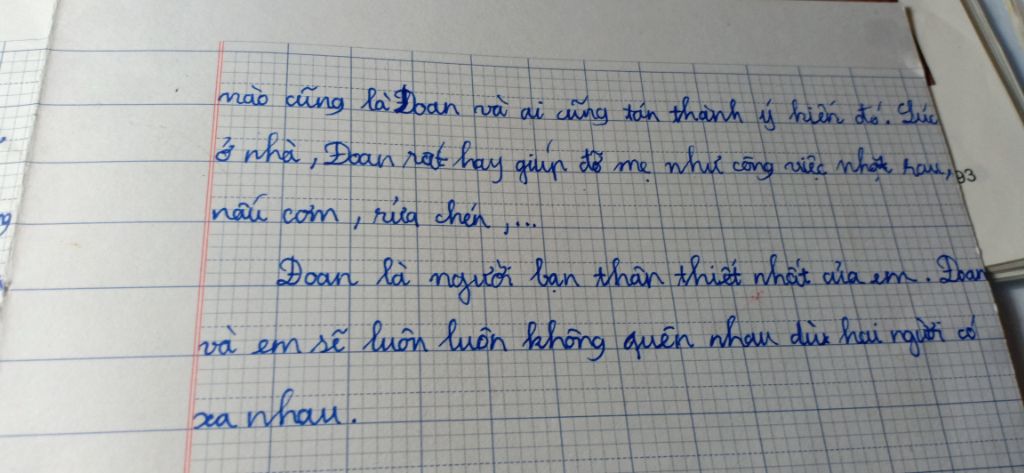 nào cũng là Đoan và ai cũng tán thành ý hiến đó. Lúc
ở nhà, Đoan rất hay giúp đỡ mẹ như công việc nhặt rau,
nấu cơm, rửa chén,...
Đoan là người bạn thân thiết nhất của em. Đoan
và em sẽ luôn luôn không quên nhau dù hai người có
xa nhau.